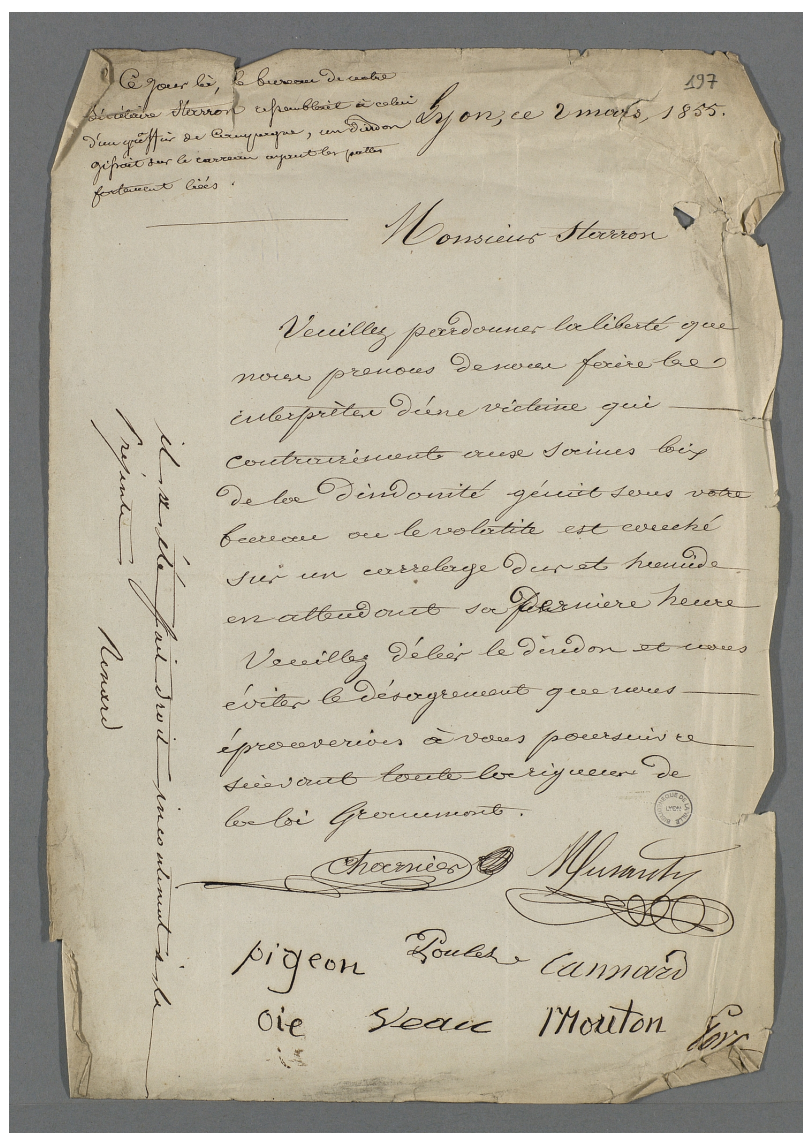 197
Ce jour là, le bureau de notre
secrétaire Starron ressemblait à celui
d'un greffier de Campagne, un dindon
gissait sur le carreau ayant les pattes
fortement liées.
Lyon, ce 2 mars, 1855.
Monsieur Starron
Veuillez pardonner la liberté que
nous prenons de nous faire les
interprètes d'une victime qui
contrairement aux saines loix
de la Dindonité gémit sous votre
bureau ou le volatile est couché
sur un carrelage dur et humide
en attendant sa dernière heure
Veuillez délier le dindon et nous
éviter le désagrement que nous
éprouverions à vous poursuivre
suivant toute la rigueur de
la loi Grammont.
Charnier
pigeon Poulet Cannard
Oie Veau Mouton Porc
il a été fait droit incontinent à la
présente
Renard
BIBLIOTHEQUE DE LA VILLE
LYON